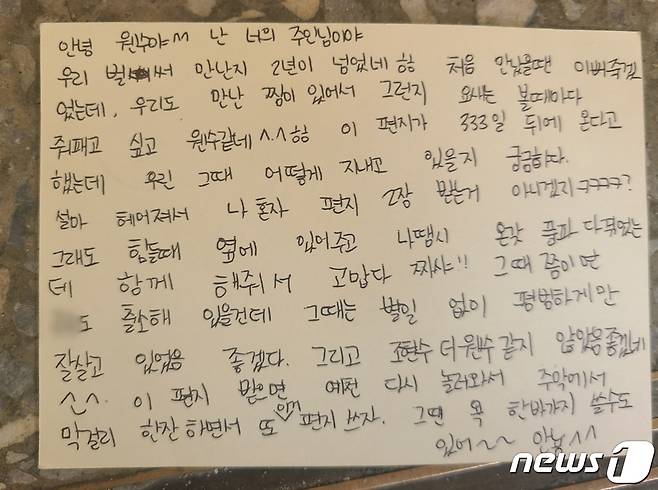 안녕 원수야^^ 난 너의 주인님이야
우리 벌써 만난지 2년이 넘었네ㅎㅎ 처음 만났을땐 이뻐죽겠
었는데, 우리도 만난 찜이 있어서 그런지 요새는 볼때마다
줘패고 싶고 원수같네^.^ㅎㅎ 이 편지가 333일 뒤에 온다고
했는데 우린 그때 어떻게 지내고 있을지 궁금하다.
설마 헤어져서 나 혼자 편지 2장 받는거 아니겠지ㅋㅋㅋㅋ?
그래도 힘들때 옆에 있어주고 나땜시 온갖 풍파 다 겪었는
데 함께 해줘서 고맙다 짜샤!! 그때 쯤이면
도 출소해 있을건데 그때는 별일 없이 평범하게만
잘살고 있었음 좋겠다. 그리고 조현수 더 원수 같지 않았음 좋겠네
^_^. 이 편지 받으면 예전 다시 놀러와서 주막에서
막걸리 한잔 하면서 또 편지 쓰자. 그땐 욕 한바가지 쓸수도
있어~~ 안뇽^^
news1